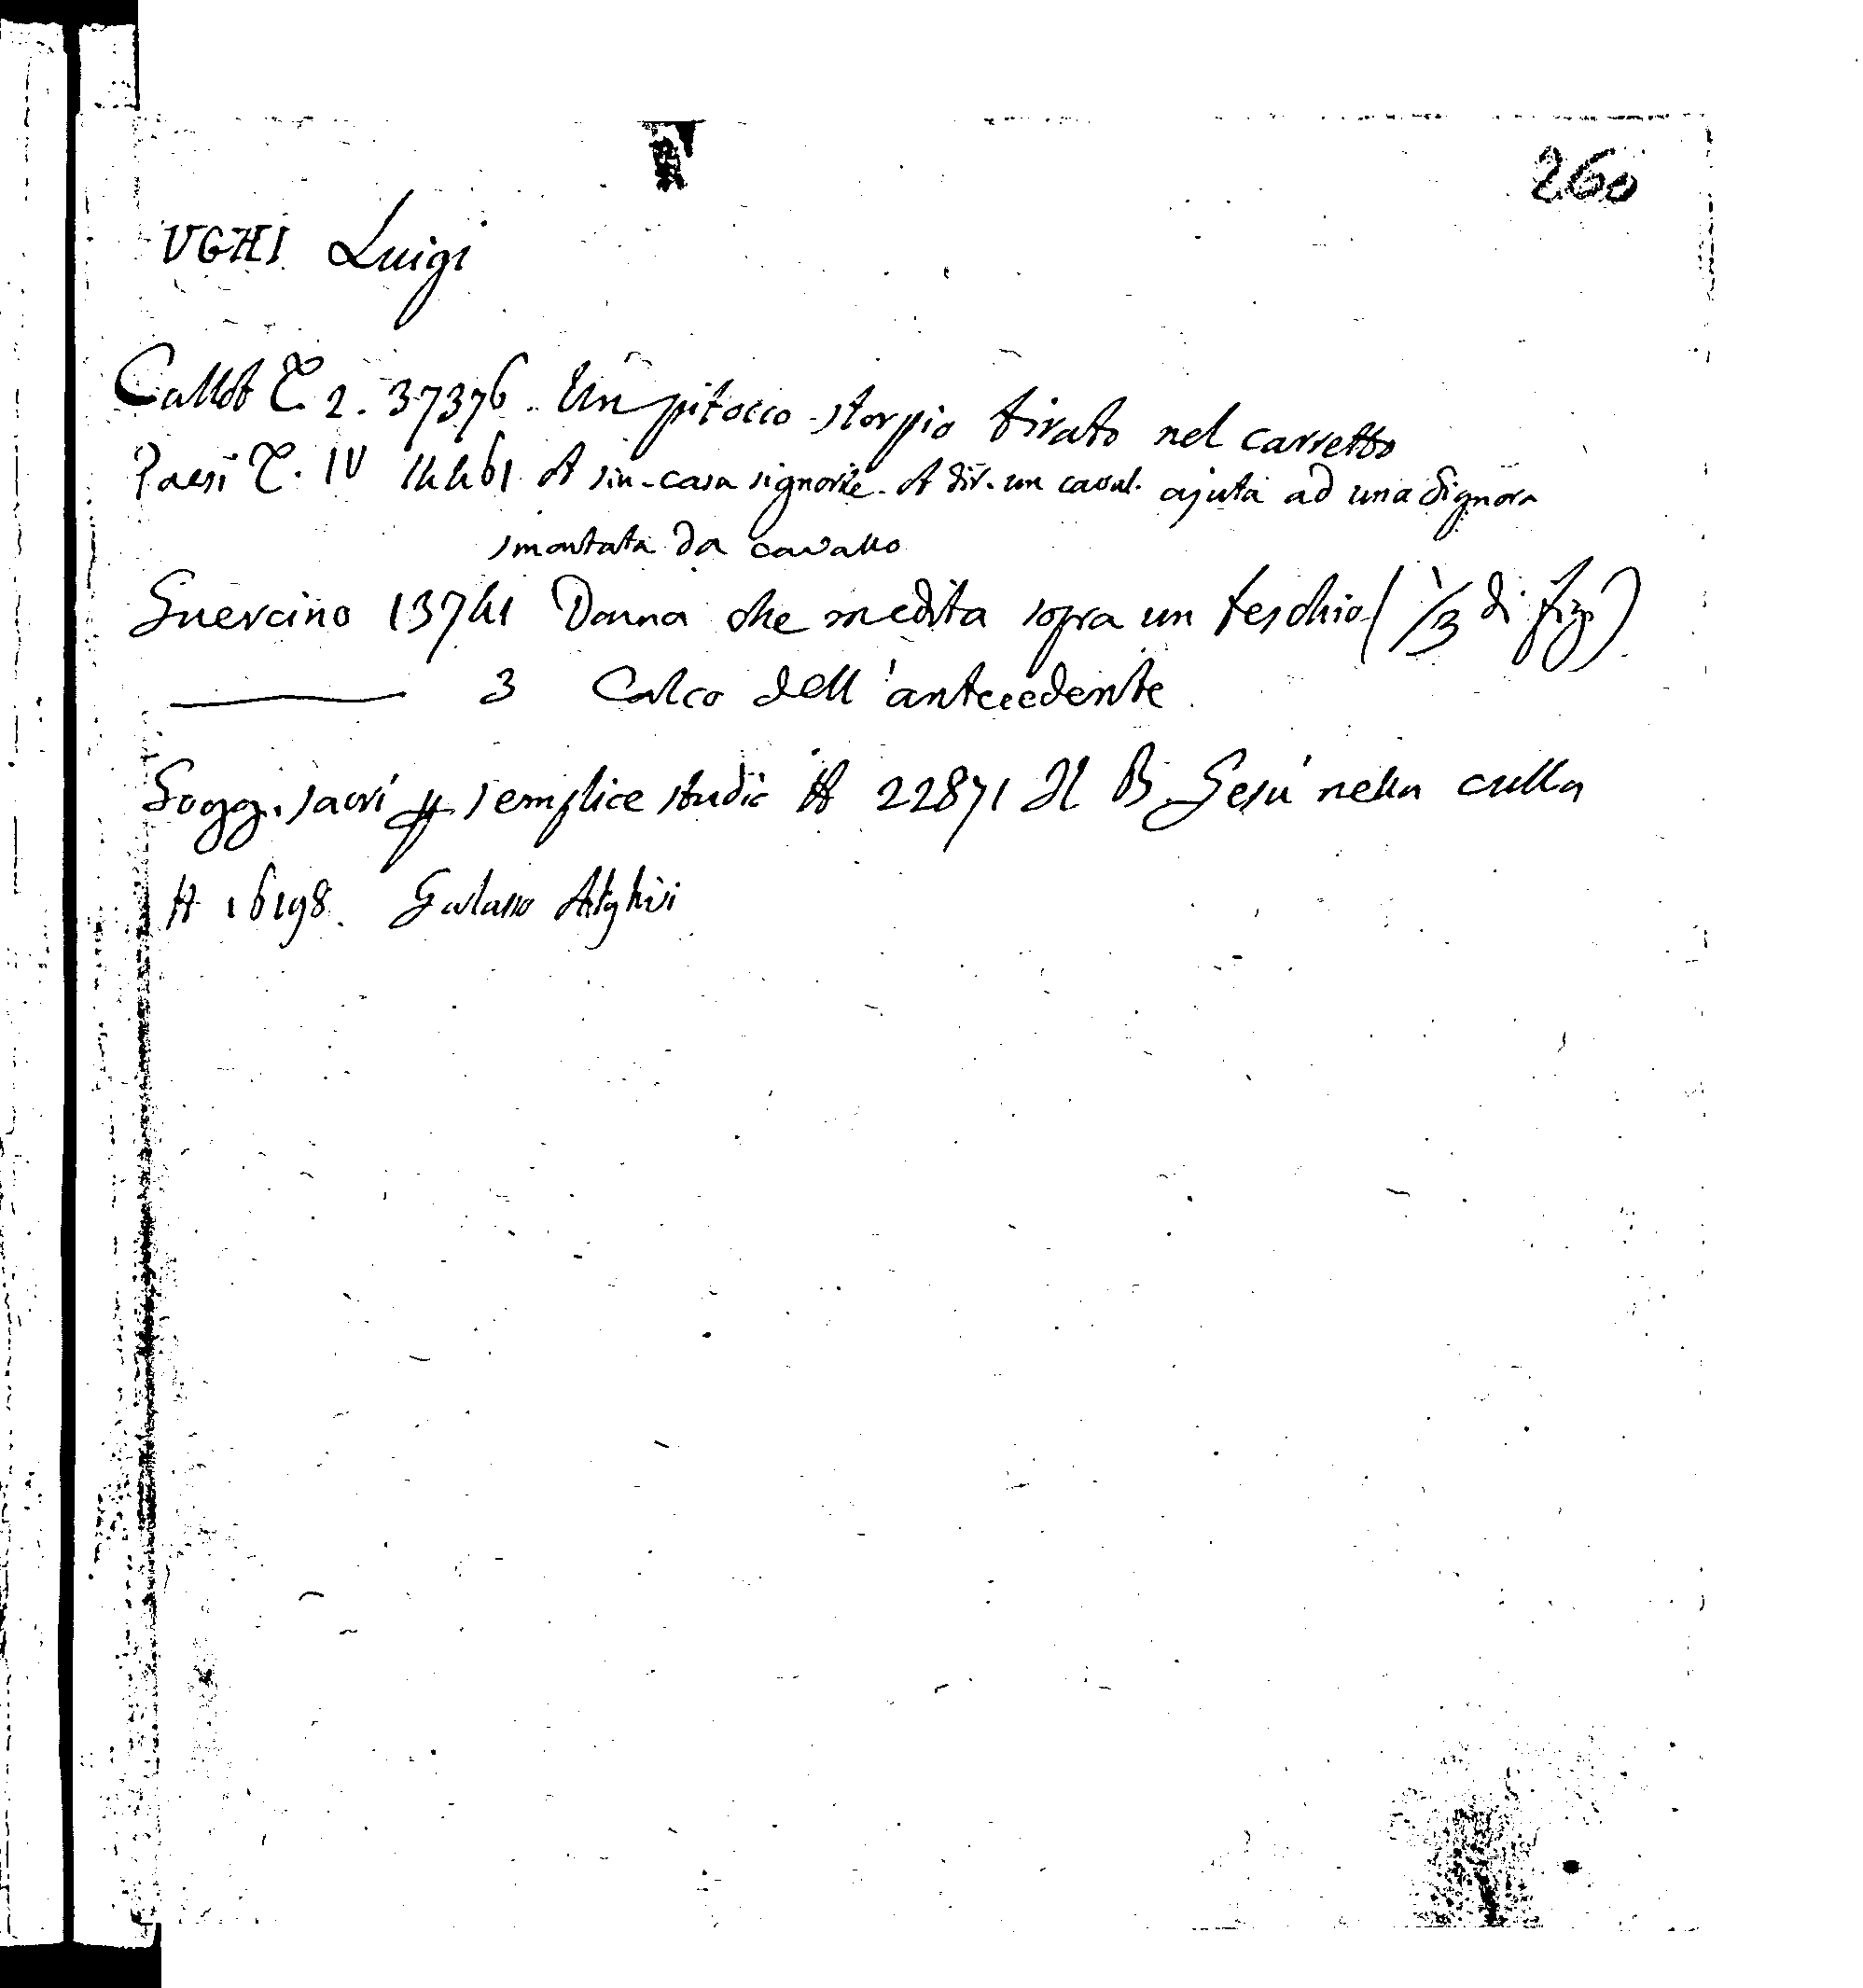 260
UGHI Luigi
Callot T. 2. 37376. Un pitocco storpio tirato nel carretto
Paesi T. IV 14461 A sin. casa signorile. A dir. un caval. ajuta ad una Signora
smontata da cavallo
Guercino 13741 Donna che medita sopra un teschio (1/3 di fig.)
——— 3 Calco dell'antecedente
Sogg. sacri semplice studio A 22871 Il B. Gesù nella culla
A 16198. Galasso